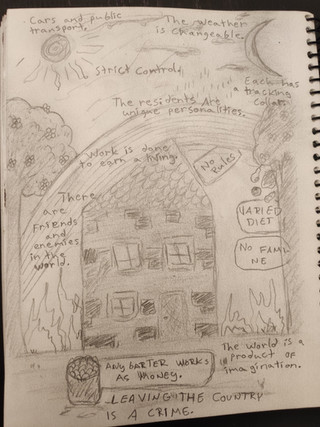 Cars and public
transport.
The weather
is changeable.
Strict Control
Each has
a tracking
collar.
The residents Are
unique personalities.
Work is done
to earn a living.
No
Rules
There
are
Friends
and
enemies
in the
world.
VARIED
DIET
NO FAMI
NE
The world is a
product of
imagination.
Any barter works
as money.
LEAVING THE COUNTRY
IS A CRIME.